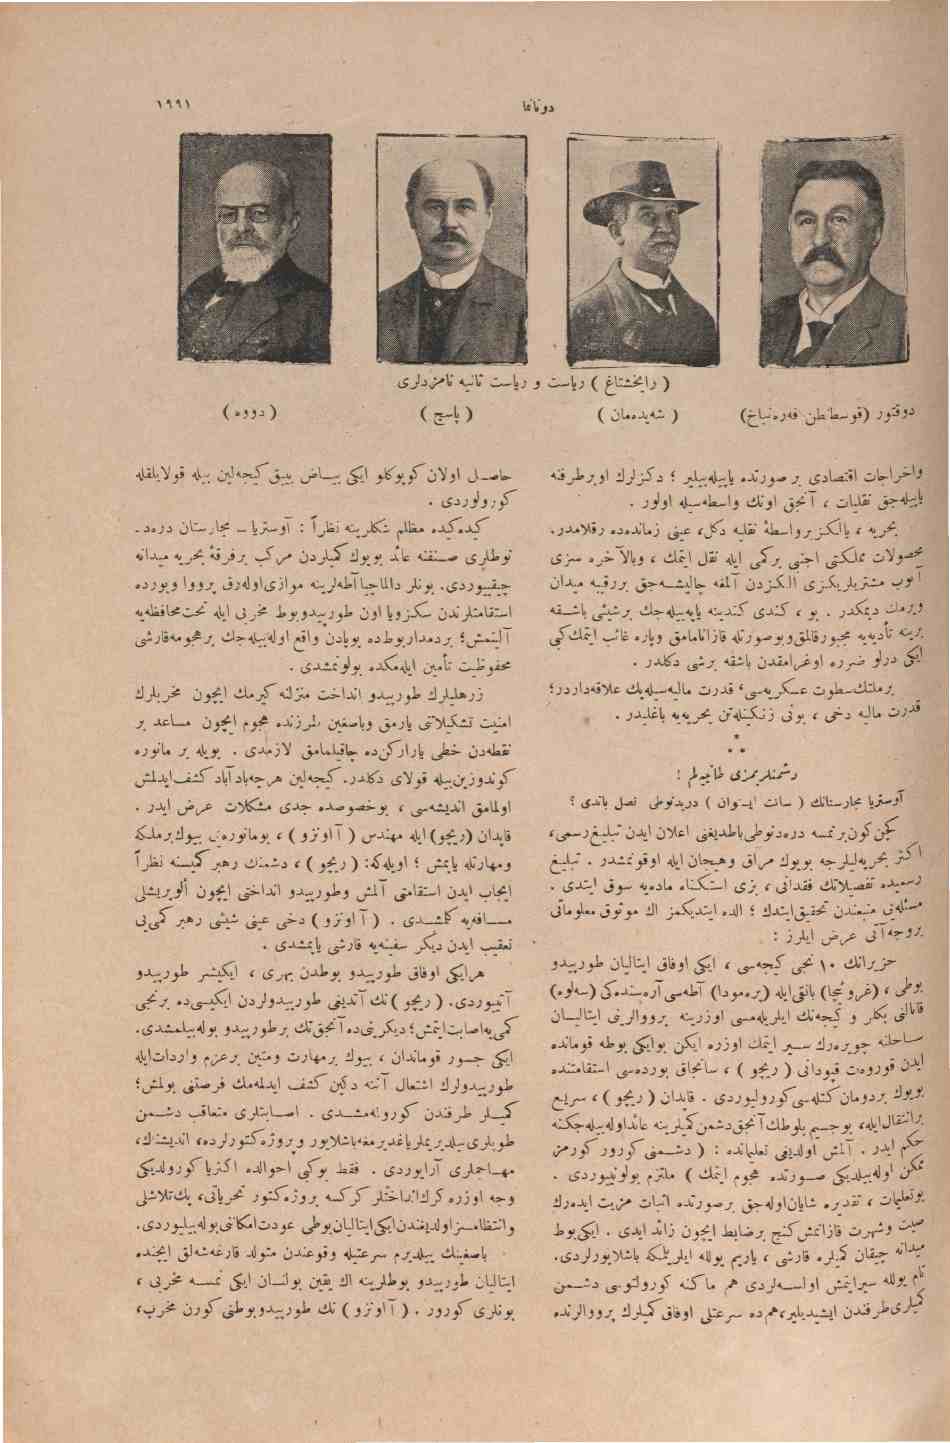 دوناما
١٩٩١
( رايخشتاغ ) رياست و رياست ثانيه نامزدلری
دوقتور (قوسطانطن فه‌ره‌نباخ)
( شه‌يده‌مان )
( پاسچ )
( دووه )
واخراجات اقتصادی بر صورتده ياپيله‌بيلير ؛ دكزلرك اوبرطرفنه
ياپيله‌جق نقليات ، آنجق اونك واسطه‌سيله اولور .
بحريه ، يالكز برواسطهٔ نقليه دكل، عينی زمانده‌ده رقلامدر.
محصولات مملكتی اجنبی بركمی ايله نقل ايتمك ، وبالآخره سزی
آلوب مشتريلريكزی الكزدن آلمغه چاليشه‌جق بررقيبه ميدان
ويرمك ديمكدر . بو ، كندی كندينه ياپه‌بيله‌جك برشيئی باشقه
برينه تأديه‌يه مجبورقالمق‌وبوصورتله قازانامامق وپاره غائب ايتمك‌كبی
ايكی درلو ضرره اوغرامقدن باشقه برشی دكلدر .
برملتك‌سطوت عسكريه‌سی، قدرت ماليه‌سيله‌پك علاقه‌داردر؛
قدرت ماليه دخی ، بونی زنكينله‌تن بحريه‌يه باغليدر .
*
* *
دشمنلريمزی طانييه‌لم !
آوستريا مجارستانك ( سانت ايستوان ) دريدنوطی نصل باتدی ؟
كچن‌كون‌برنمسه دره‌دنوطی‌باطديغنی اعلان ايدن تبليغ‌رسمی،
اكثر بحريه‌ليلرجه بويوك مراق وهيجان ايله اوقونمشدر . تبليغ
رسميده تفصيلاتك فقدانی ، بزی استكناه ماده‌يه سوق ايتدی .
مسئله‌يی منبعندن تحقيق‌ايتدك ؛ الده ايتديكمز اك موثوق معلوماتی
بروجه‌آتی عرض ايلرز :
حزيرانك ١٠ نجی كيجه‌سی ، ايكی اوفاق ايتاليان طورپيدو
بوطی ، (غروئيچا) بانقی‌ايله (بره‌مودا) آطه‌سی آره‌سنده‌كی (سه‌لوه)
قانالنی بكلر و كيجه‌نك ايلريله‌مسی اوزرينه پرووالرينی ايتاليان
ساحلنه چويره‌رك سير ايتمك اوزره ايكن بوايكی بوطه قومانده
ايدن قوروه‌ت قپودانی ( ريچو ) ، سانجاق بورده‌سی استقامتنده
بويوك بردومان كتله‌سی كوروليوردی . قاپدان ( ريچو ) ، سريع
برانتقال‌ايله، بوجسيم بلوطك آنجق‌دشمن‌كميلرينه عائداوله‌بيله‌جكنه
حكم ايدر . آلمش اولديغی تعليماتده : ( دشمنی كورور كورمز
ممكن اوله‌بيلديكی صورتده هجوم ايتمك ) ملتزم بولونيوردی .
بوتعليمات ، تقديره شايان‌اوله‌جق برصورتده اثبات مزيت ايده‌رك
صيت وشهرت قازانمش‌كنج برضابط ايچون زائد ايدی . ايكی‌بوط
ميدانه چيقان كميلره قارشی ، ياريم يولله ايلريلمكه باشلايورلردی.
تام يولله سيرايتمش اولسه‌لردی هم ماكنه كورولتوسی دشمن
كميلری‌طرفندن ايشيديلير،هم‌ده سرعتلی اوفاق كميلرك پرووالرنده
حاصل اولان كوپوكلو ايكی بياض بييق‌كيجه‌لين بيله قولايلقله
كورولوردی .
كيده‌كيده مظلم شكلرينه نظراً : آوستريا - مجارستان دره‌د-
نوطلری صنفنه عائد بويوك كميلردن مركب برفرقهٔ بحريه ميدانه
چيقييوردی. بونلر دالماچياآطه‌لرينه موازی‌اوله‌رق پرووا ويورده
استقامتلرندن سكزويا اون طورپيدوبوط مخربی ايله تحت‌محافظه‌يه
آلينمش؛ بردمداربوط‌ده بويادن واقع اوله‌بيله‌جك برهجومه‌قارشی
محفوظيت تأمين ايله‌مكده بولونمشدی .
زرهليلرك طورپيدو انداخت منزلنه كيرمك ايچون مخربلرك
امنيت تشكيلاتنی يارمق وباصغين طرزنده هجوم ايچون مساعد بر
نقطه‌دن خطی يارارکن‌ده چاقيلمامق لازمدی . بويله بر مانوره
كوندوزين‌بيله قولای دكلدر. كيجه‌لين هرچه‌بادآباد كشف‌ايدلمش
اولمامق انديشه‌سی ، بوخصوصده جدی مشكلات عرض ايدر .
قاپدان (ريچو) ايله مهندس ( آاونزو ) ، بومانوره‌يی بيوك‌برملكه
ومهارتله ياپمش ؛ اويله‌كه: ( ريچو ) ، دشمنك رهبر كميسنه نظراً
ايجاب ايدن استقامتی آلمش وطورپيدو انداختی ايچون ألويريشلی
مسافه‌يه كلمشدی . ( آ اونزو ) دخی عينی شيئی رهبر كمی‌يی
تعقيب ايدن ديكر سفينه‌يه قارشی ياپمشدی .
هرايكی اوفاق طورپيدو بوطدن بهری ، ايكيشر طورپيدو
آتييوردی. ( ريچو ) نك آتديغی طورپيدولردن ايكيسی‌ده برنجی
كمی‌يه‌اصابت‌ايتمش؛ ديكرينی‌ده آنجق‌تك برطورپيدو بوله‌بيلمشدی.
ايكی جسور قوماندان ، بيوك برمهارت ومتين برعزم واردات‌ايله
طورپيدولرك اشتعال آننه دكين كشف ايدلمه‌مك فرصتنی بولمش؛
كميلر طرفندن كورونه‌مشدی . اصابتلری متعاقب دشمن
طوپلری‌يلديريملرياغديرمغه‌باشلايور وپروژه‌كتورلرده، انديشناك،
مهاجملری آرايوردی . فقط بوكبی احوالده اكثريا كورولديكی
وجه اوزره كرك‌انداختلر كركسه پروژه‌كتور تحرياتی، پك‌تلاشلی
وانتظامسزاولديغندن‌ايكی‌ايتاليان‌بوطی عودت‌امكاننی‌بوله‌بيليوردی.
باصغينك ييلديرم سرعتيله وقوعندن متولد قارغه‌شه‌لق ايچنده
ايتاليان طورپيدو بوطلرينه اك يقين بولنان ايكی نمسه مخربی ،
بونلری كورور . ( آاونزو ) نك طورپيدوبوطنی كورن مخرب،